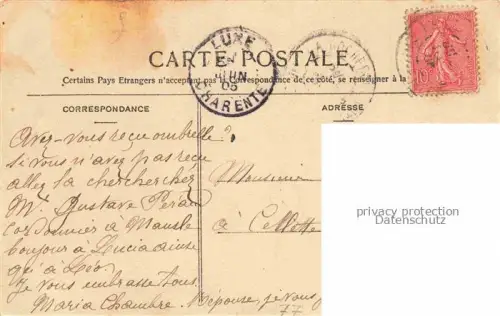 CARTE POSTALE
Certains Pays Etrangers n'acceptant pas la Correspondance de ce côté, se renseigner à la
LUXÉ
JUIN
05
CHARENTE
10
CORRESPONDANCE
ADRESSE
Avez-vous reçu ombrelle?
si vous n'avez pas reçu
allez la cherchez chez
Mr Gustave
cordonnier à Mansle
bonjour à Lucia ainsi
qu'à Léo
je vous embrasse tous
Maria Chambre. Réponse, je vous
77
Monsieur
à Cellette
privacy protection
Datenschutz